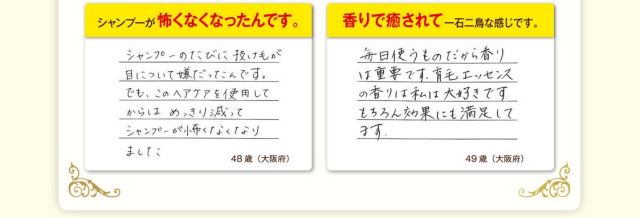 シャンプーが怖くなくなったんです。
シャンプーのたびに抜け毛が
目について嫌だったんです。
でも、このヘアケアを使用して
からは めっきり減って
シャンプーが怖くなくなり
ました
48歳（大阪府）
香りで癒されて一石二鳥な感じです。
毎日使うものだから香り
は重要です。育毛エッセンス
の香りは私は大好きです
もちろん効果にも満足して
ます。
49歳（大阪府）